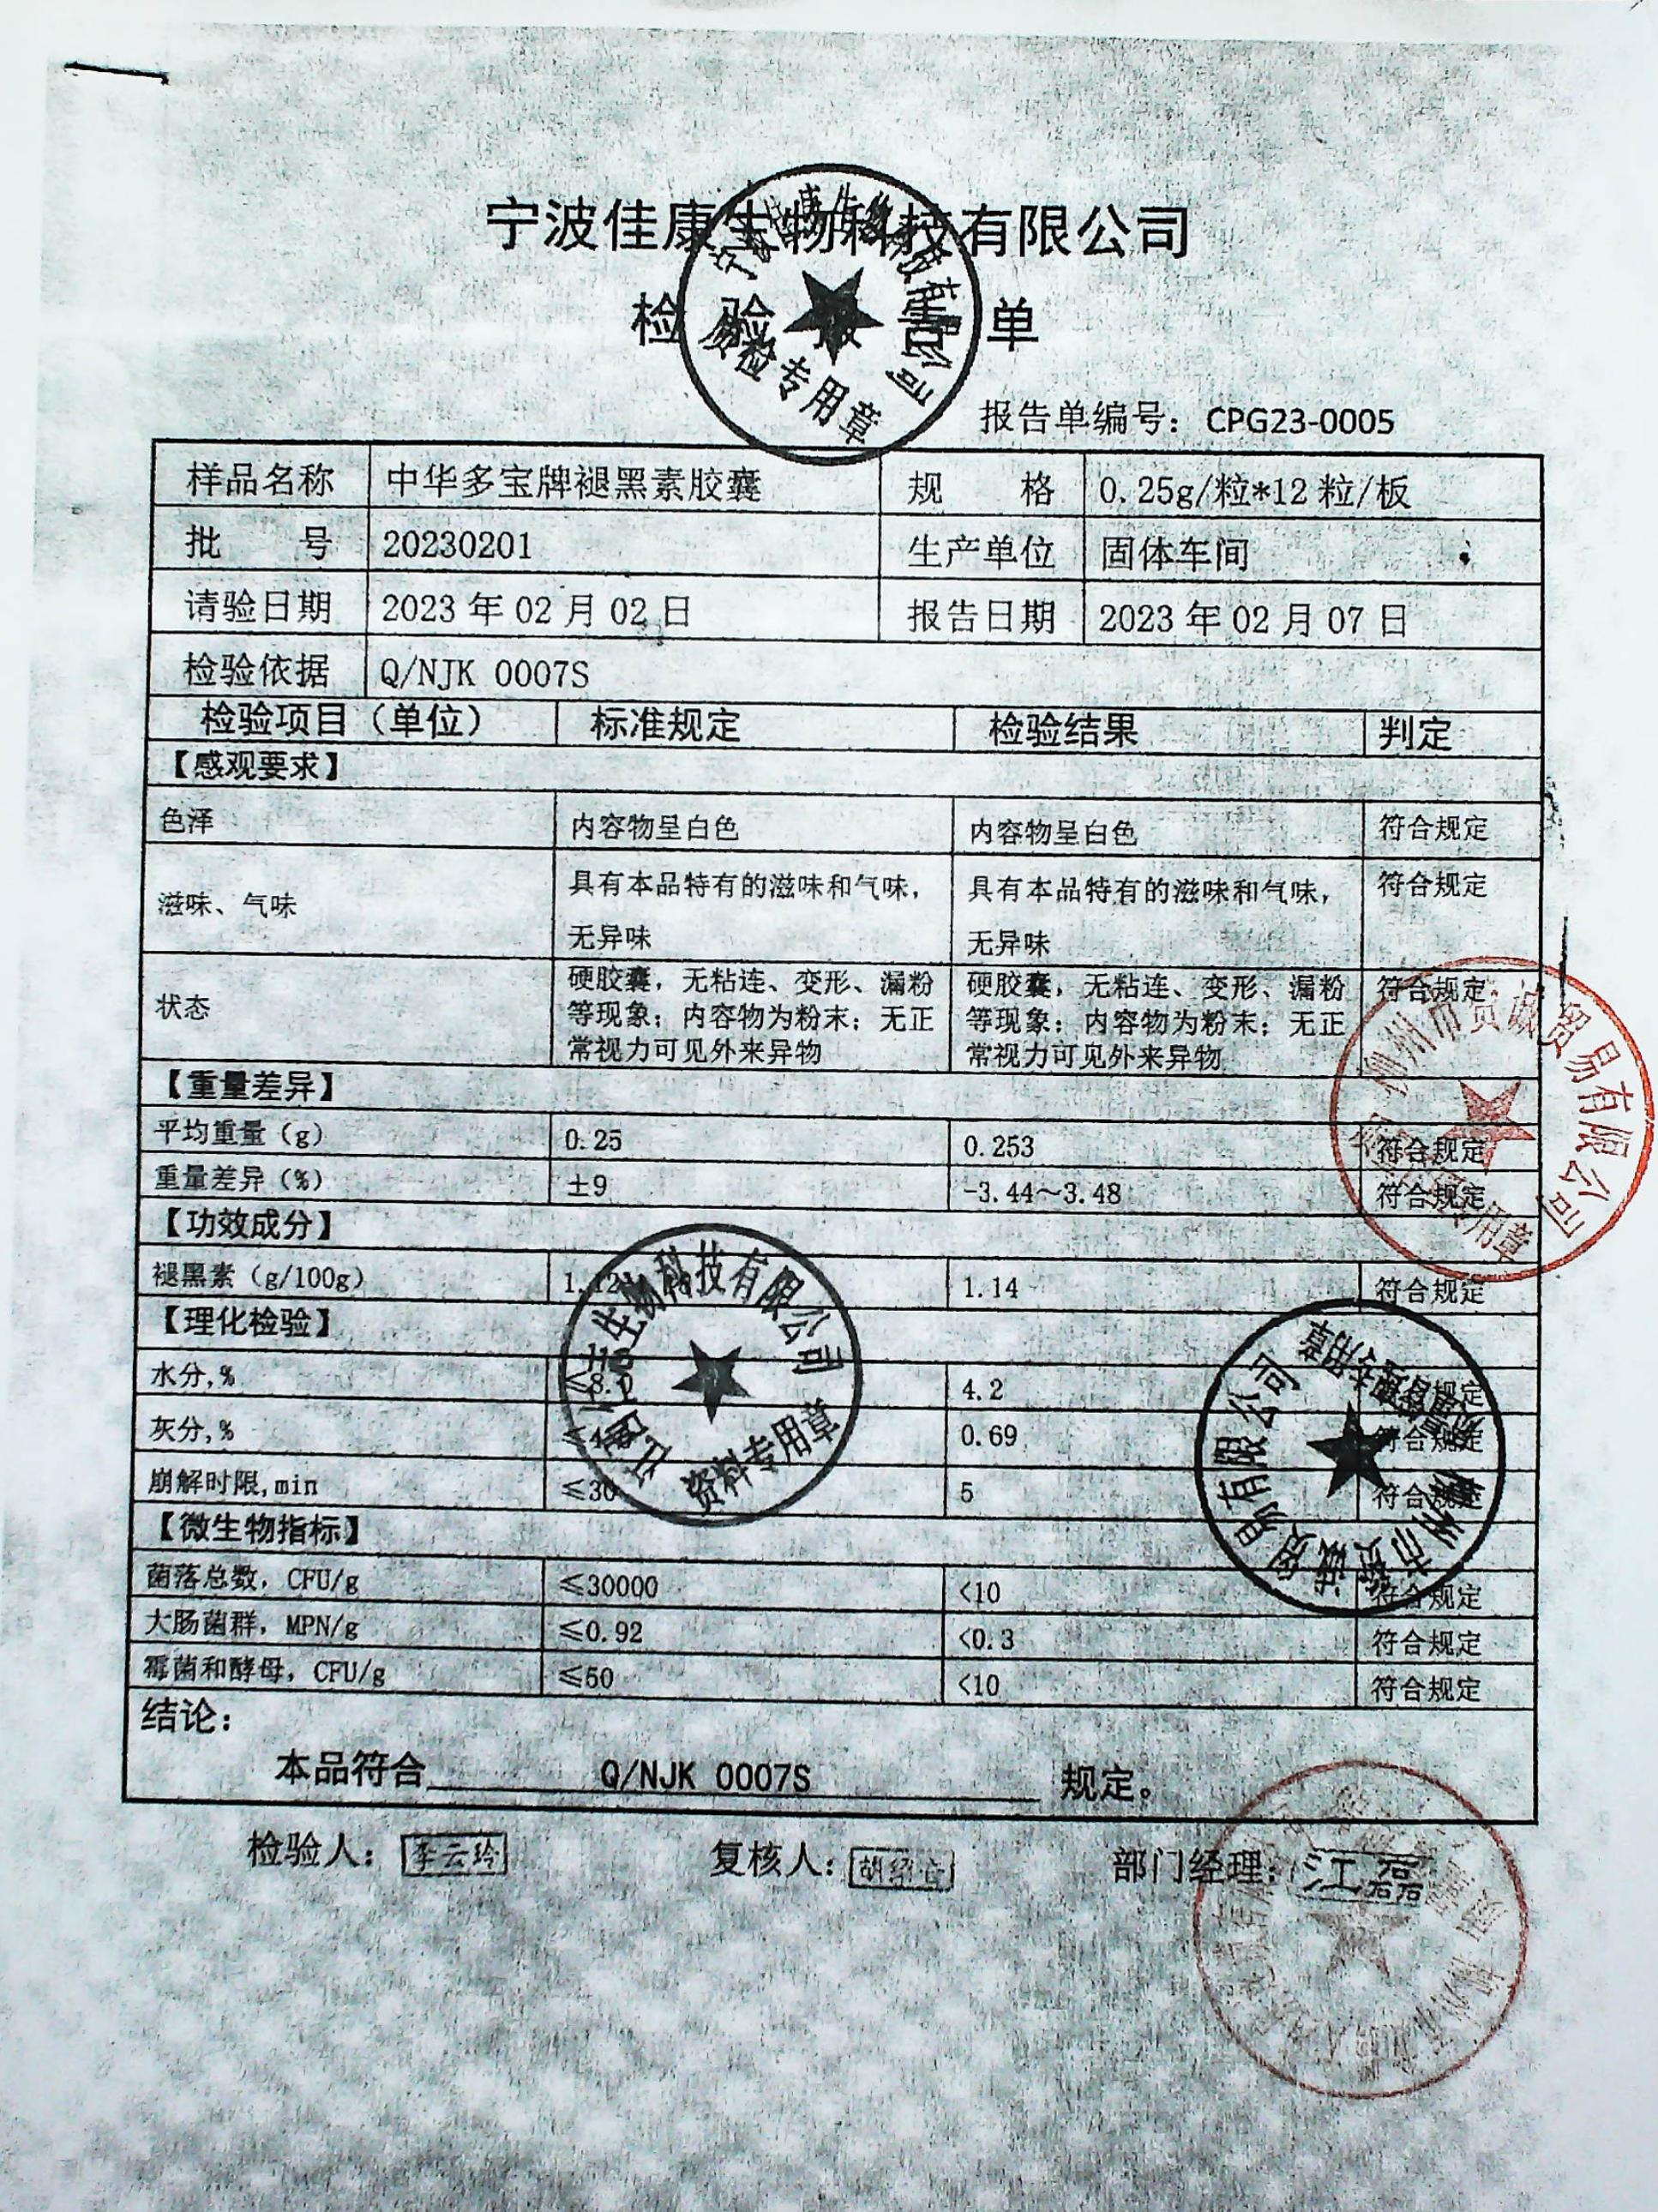 宁波佳康生物科技有限公司
检验报告单
报告单编号： CPG23-0005
样品名称 中华多宝牌褪黑素胶囊 规 格 0.25g/粒*12粒/板
批 号 20230201 生产单位 固体车间
请验日期 2023年02月02日 报告日期 2023年02月07日
检验依据 Q/NJK 0007S
检验项目（单位） 标准规定 检验结果 判定
【感观要求】
色泽 内容物呈白色 内容物呈白色 符合规定
滋味、气味 具有本品特有的滋味和气味， 具有本品特有的滋味和气味， 符合规定
无异味 无异味
硬胶囊，无粘连、变形、漏粉 硬胶囊，无粘连、变形、漏粉 符合规定
状态 等现象；内容物为粉末；无正 等现象；内容物为粉末；无正
常视力可见外来异物 常视力可见外来异物
【重量差异】
平均重量（g） 0.25 0.253 符合规定
重量差异（%） ±9 -3.44～3.48 符合规定
【功效成分】
褪黑素（g/100g） 1.14 符合规定
【理化检验】
水分,% ≤8.0 4.2 符合规定
灰分,% 0.69 符合规定
崩解时限,min ≤30 5 符合规定
【微生物指标】
菌落总数，CFU/g ≤30000 <10 符合规定
大肠菌群，MPN/g ≤0.92 <0.3 符合规定
霉菌和酵母，CFU/g ≤50 <10 符合规定
结论：
本品符合 Q/NJK 0007S 规定。
检验人： 李云玲 复核人： 部门经理： 江磊
宁波佳康生物科技有限公司
质检专用章
生物科技有限公司
资料专用章
柳州市贸诚贸易有限公司